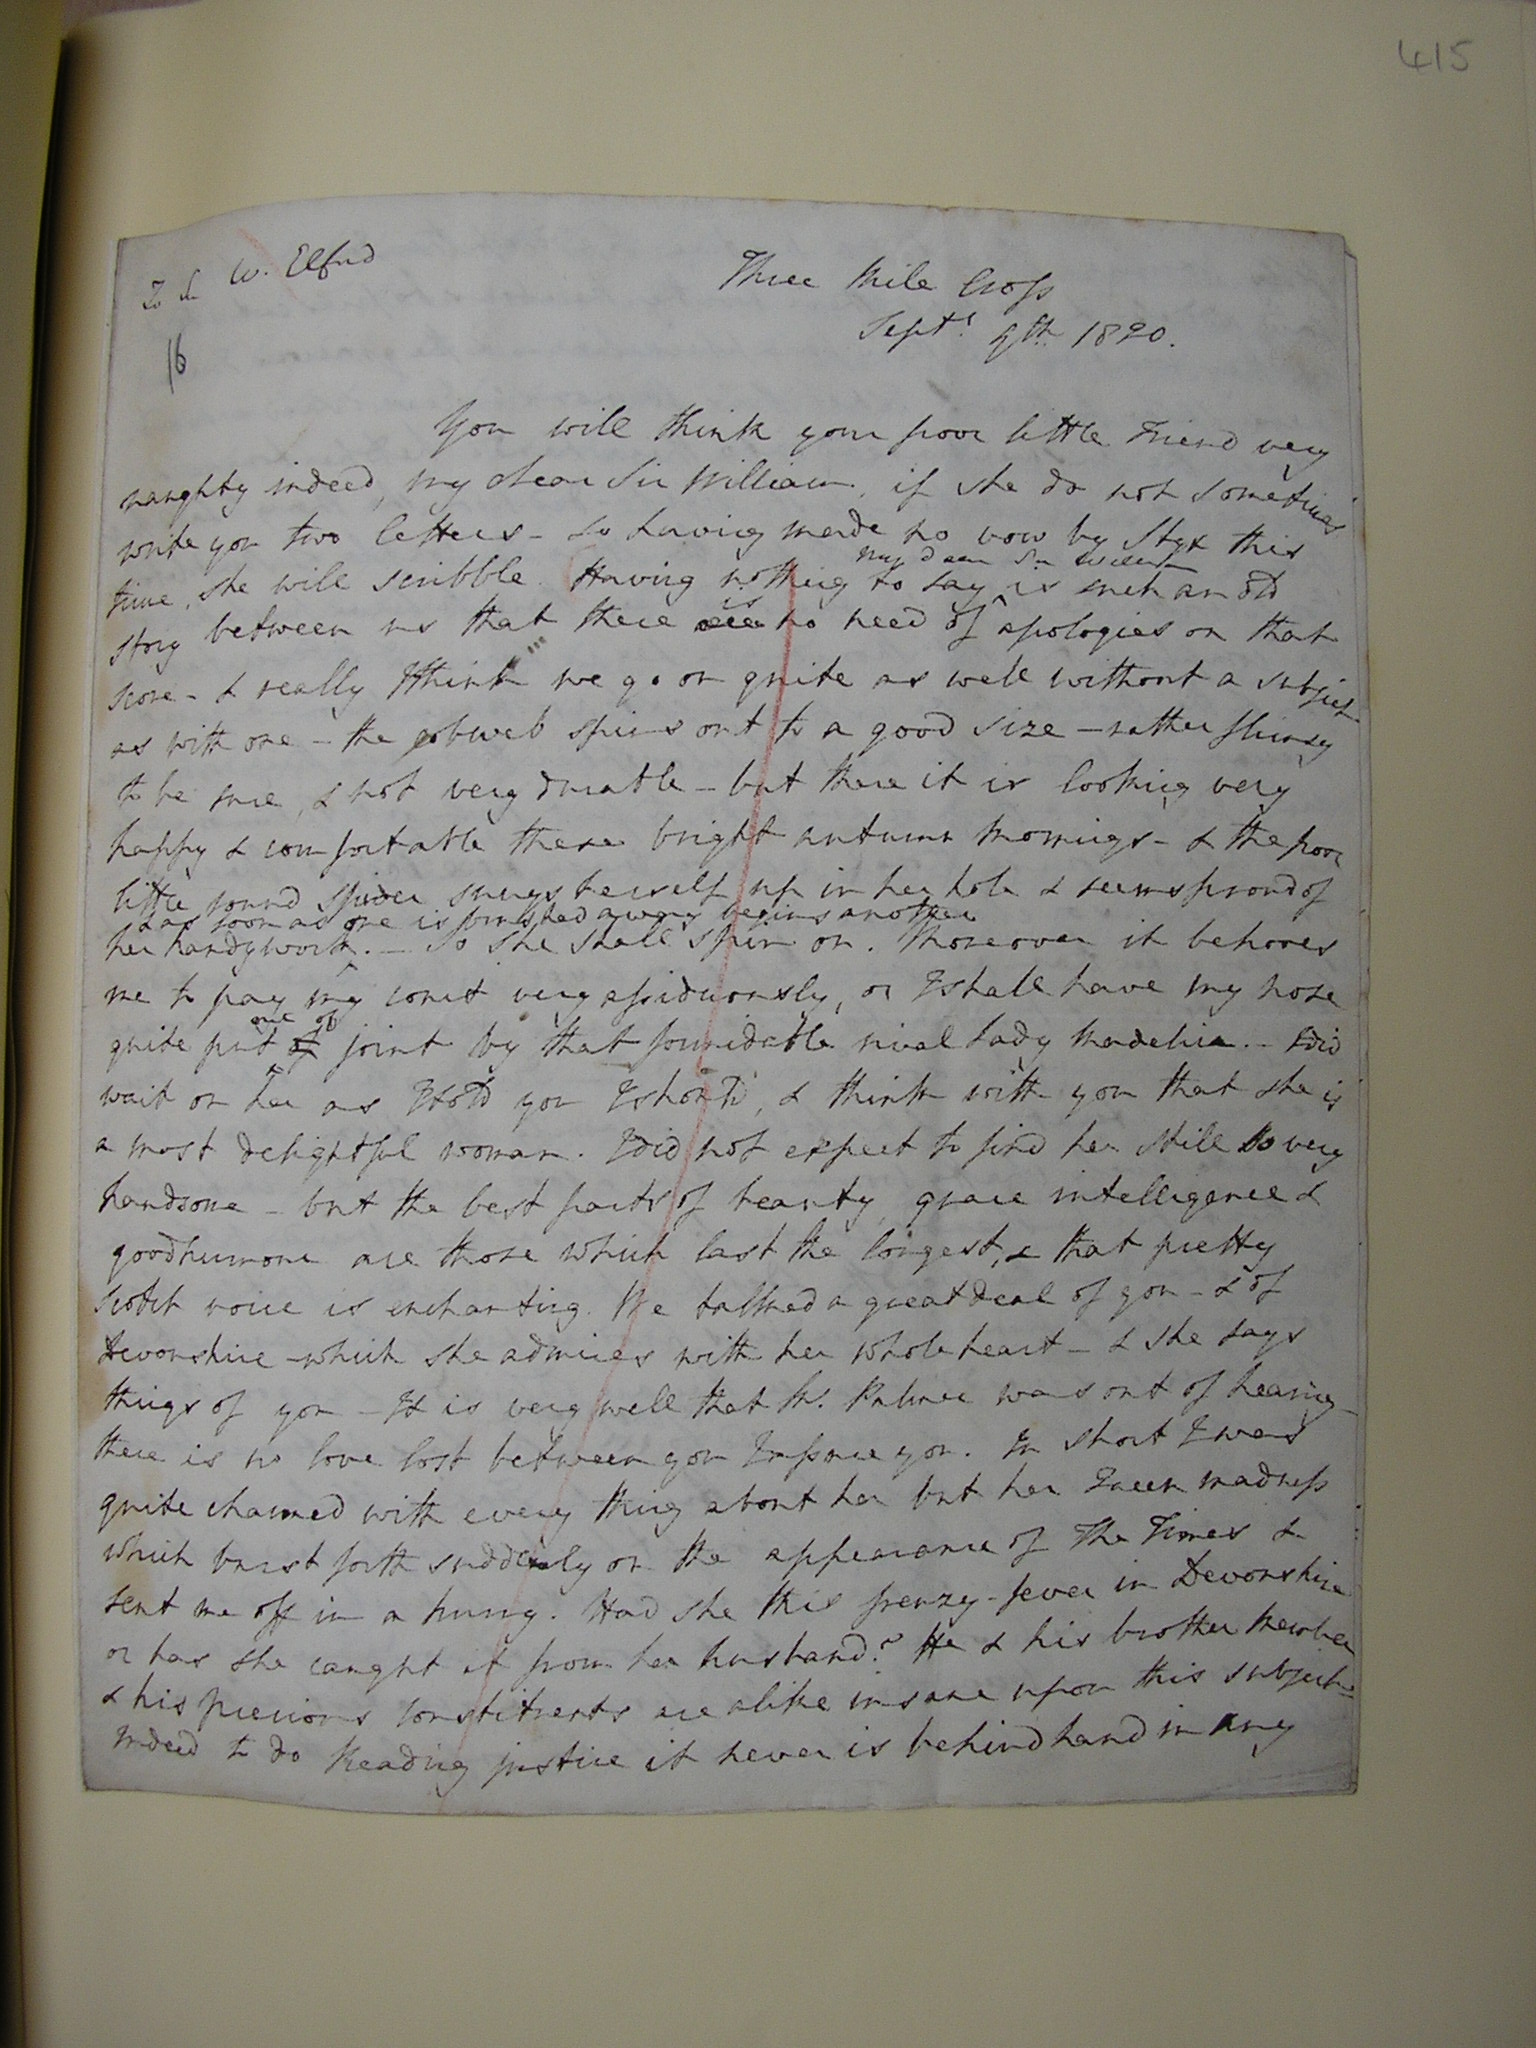 415
To Sir W. Elford
Three Mile Cross
Septr 9th 1820.
16
You will think your poor little Friend very
naughty indeed, my dear Sir William, if she do not sometimes
write you two letters - So having made no vow by Styx this
time, she will scribble. Having nothing to say is such an old
my dear Sir William
story between us that there are is no need of apologies on that
score - & really I think we go on quite as well without a subject
as with one - the cobweb spins out to a good size - rather flimsy
to be sure, & not very durable - but there it is looking very
happy & comfortable these bright autumn mornings - & the poor
little round spider snugs herself up in her hole & seems proud of
& as soon as one is finished away begins another
her handywork. - So she shall spin on. Moreover it behoves
me to pay my court very assiduously, or I shall have my nose
quite put of out of joint by that formidable rival Lady Madelina. - I did
wait on her as I told you I should, & think with you that she is
a most delightful woman. I did not expect to find her still so very
handsome - but the best parts of beauty, grace intelligence &
goodhumour are those which last the longest, & that pretty
Scotch voice is enchanting. We talked a great deal of you - & of
Devonshire - which she admires with her whole heart - & she says
things of you - It is very well that Mr. Palmer was out of hearing -
there is no love lost between you I assure you. In short I was
quite charmed with every thing about her but her Queen madness
which burst forth suddenly on the appearance of The Times &
sent me off in a hurry. Had she this frenzy-fever in Devonshire
or has she caught it from her husband? He & his brother Member
& his precious Constituents are alike insane upon this subject -
indeed to do Reading justice it never is behind hand in any